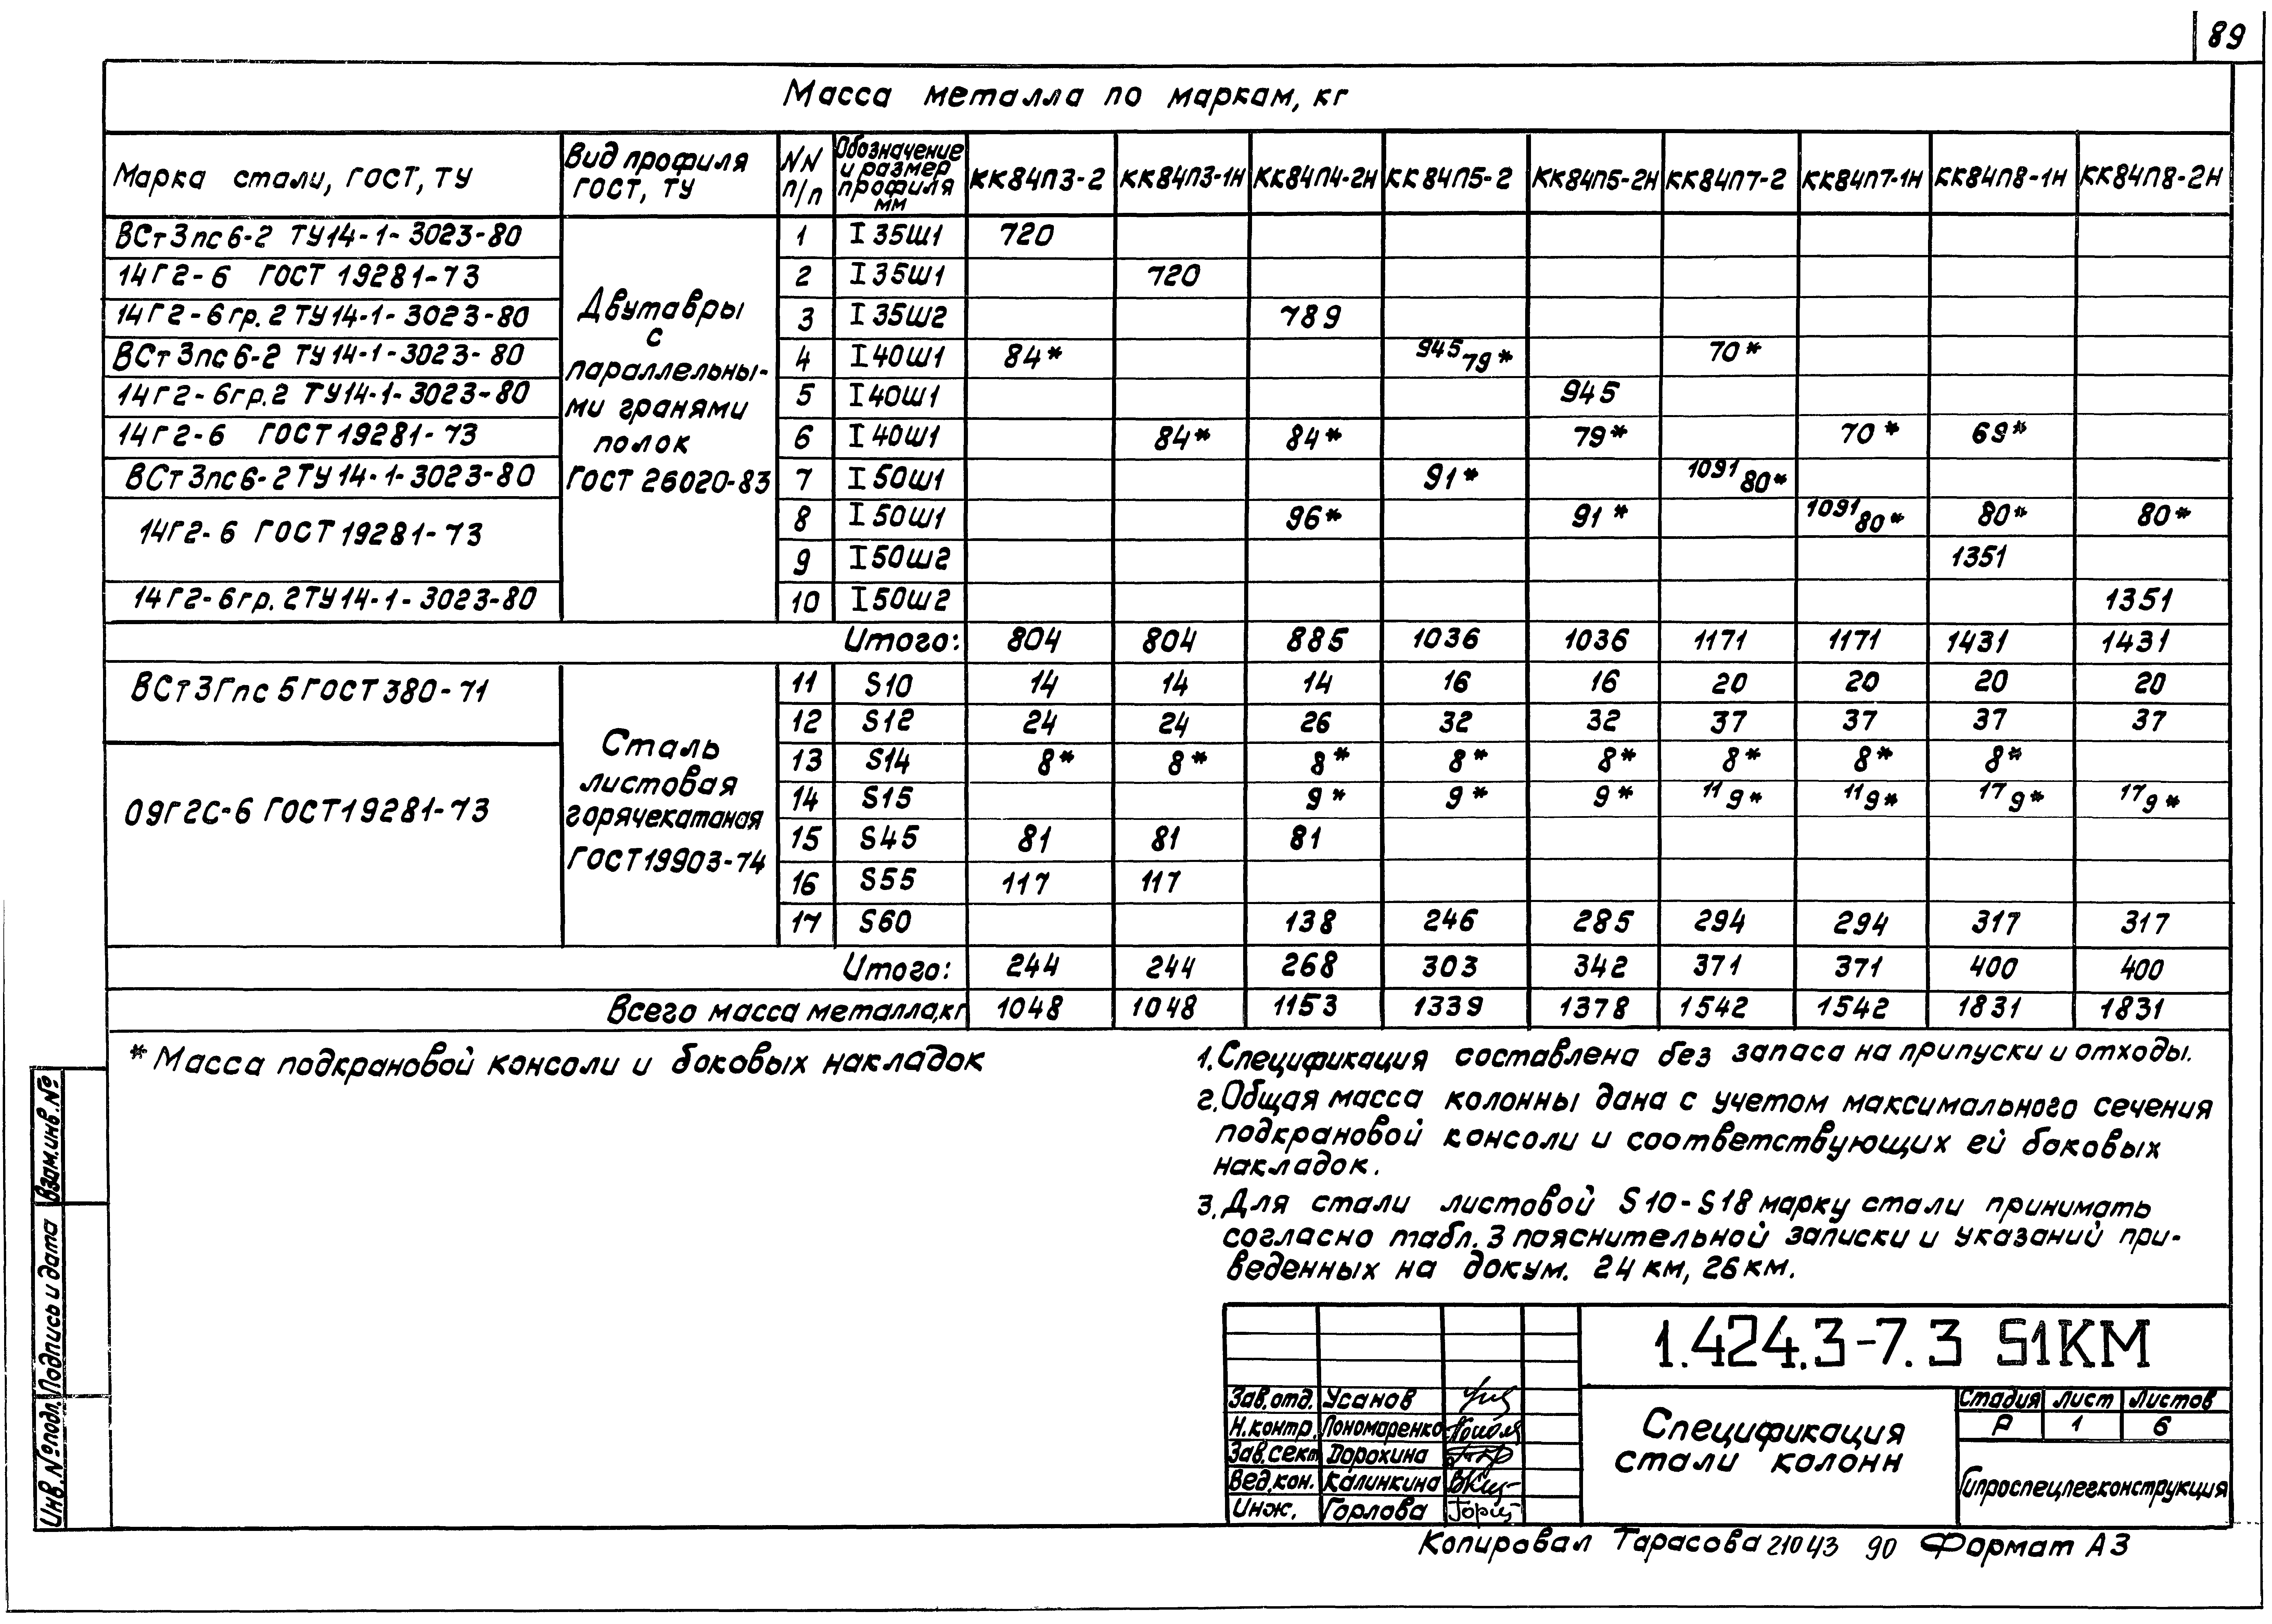 89
Масса металла по маркам, кг
Марка стали, ГОСТ, ТУ | Вид профиля ГОСТ, ТУ | NN п/п | Обозначение и размер профиля мм | КК84П3-2 | КК84П3-1Н | КК84П4-2Н | КК84П5-2 | КК84П5-2Н | КК84П7-2 | КК84П7-1Н | КК84П8-1Н | КК84П8-2Н
ВСт3пс6-2 ТУ14-1-3023-80 | Двутавры с параллельны- ми гранями полок ГОСТ 26020-83 | 1 | I 35Ш1 | 720
14Г2-6 ГОСТ 19281-73 | 2 | I 35Ш1 | 720
14Г2-6гр.2 ТУ14-1-3023-80 | 3 | I 35Ш2 | 789
ВСт3пс6-2 ТУ14-1-3023-80 | 4 | I 40Ш1 | 84* | 945 79* | 70*
14Г2-6гр.2 ТУ14-1-3023-80 | 5 | I 40Ш1 | 945
14Г2-6 ГОСТ 19281-73 | 6 | I 40Ш1 | 84* | 84* | 79* | 70* | 69*
ВСт3пс6-2 ТУ14-1-3023-80 | 7 | I 50Ш1 | 91* | 1091 80*
14Г2-6 ГОСТ 19281-73 | 8 | I 50Ш1 | 96* | 91* | 1091 80* | 80* | 80*
9 | I 50Ш2 | 1351
14Г2-6гр.2 ТУ14-1-3023-80 | 10 | I 50Ш2 | 1351
Итого: | 804 | 804 | 885 | 1036 | 1036 | 1171 | 1171 | 1431 | 1431
ВСт3Гпс5 ГОСТ 380-71 | Сталь листовая горячекатаная ГОСТ 19903-74 | 11 | S10 | 14 | 14 | 14 | 16 | 16 | 20 | 20 | 20 | 20
12 | S12 | 24 | 24 | 26 | 32 | 32 | 37 | 37 | 37 | 37
09Г2С-6 ГОСТ 19281-73 | 13 | S14 | 8* | 8* | 8* | 8* | 8* | 8* | 8* | 8*
14 | S15 | 9* | 9* | 9* | 11 9* | 11 9* | 17 9* | 17 9*
15 | S45 | 81 | 81 | 81
16 | S55 | 117 | 117
17 | S60 | 138 | 246 | 285 | 294 | 294 | 317 | 317
Итого: | 244 | 244 | 268 | 303 | 342 | 371 | 371 | 400 | 400
Всего масса металла,кг | 1048 | 1048 | 1153 | 1339 | 1378 | 1542 | 1542 | 1831 | 1831
* Масса подкрановой консоли и боковых накладок
1. Спецификация составлена без запаса на припуски и отходы.
2. Общая масса колонны дана с учетом максимального сечения
подкрановой консоли и соответствующих ей боковых
накладок.
3. Для стали листовой S10-S18 марку стали принимать
согласно табл. 3 пояснительной записки и указаний при-
веденных на докум. 24км, 26км.
1.424.3-7.3 S1КМ
Зав.отд. Усанов
Н.контр. Пономаренко
Зав.сект Дорохина
Вед.кон. Калинкина
Инж. Горлова
Спецификация
стали колонн
Стадия | Лист | Листов
Р | 1 | 6
Гипроспецлегконструкция
Инв.№подл. Подпись и дата Взам.инв.№
Копировал Тарасова 21043 90 Формат А3